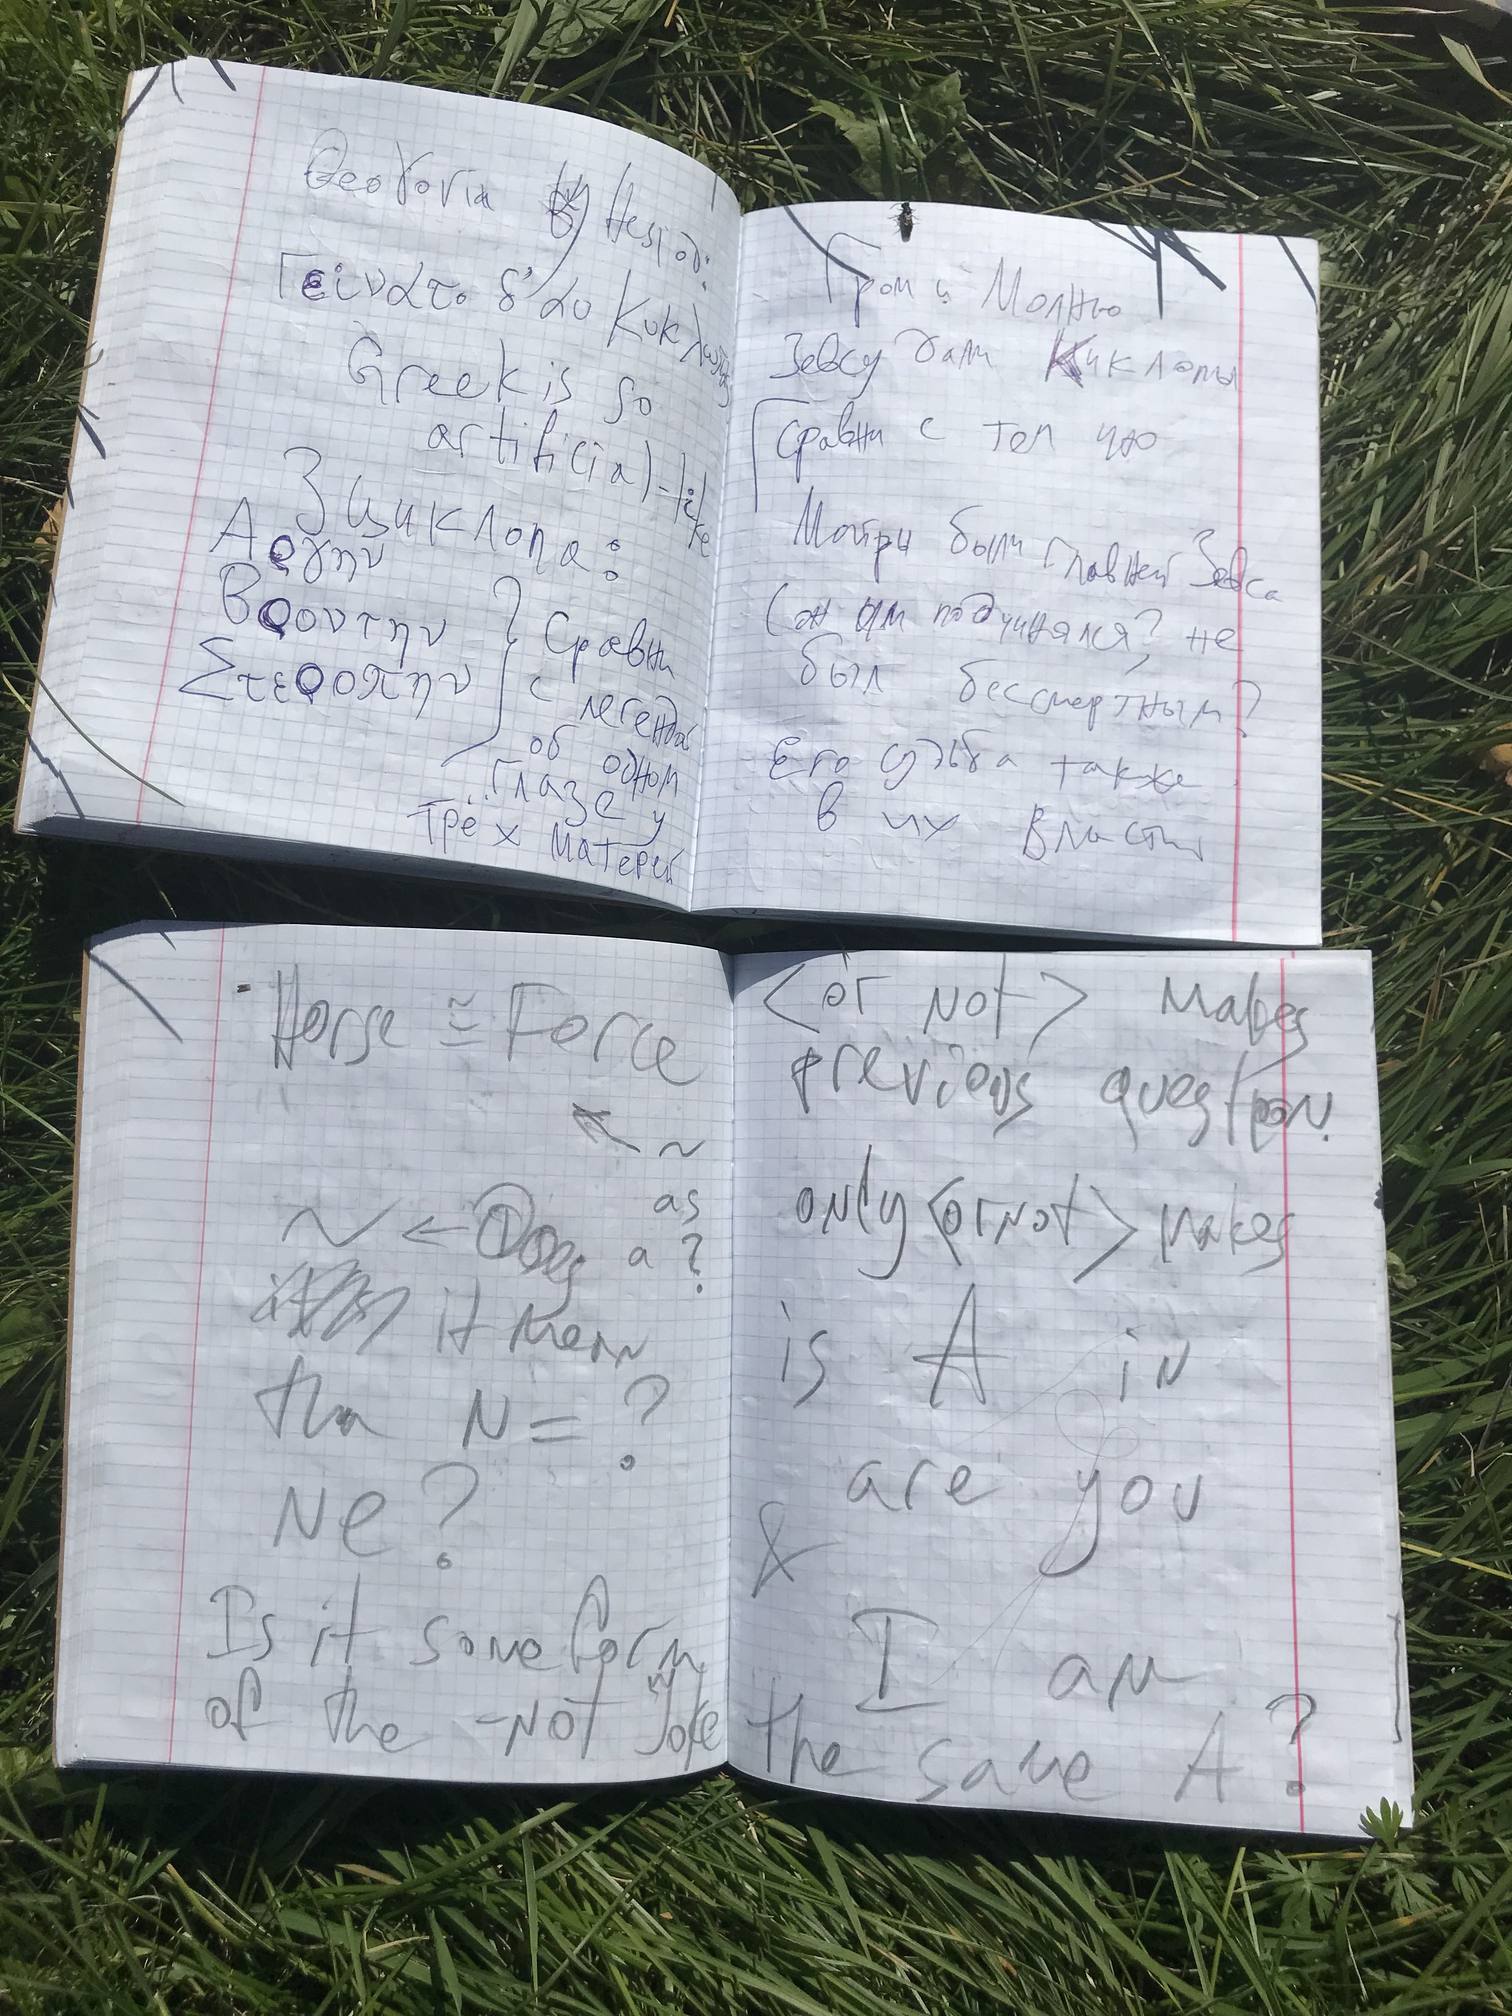 Θεογονία by Hesiod:
Γείνατο δ' αυ Κυκλωπας
Greek is so
artificial-like
3 циклопа:
Αργην
Βροντην
Στεροπην
Сравни
с легендой
об одном
глазе у
трёх матерей
Гром и Молнию
Зевсу дали Киклопы
Сравни с тем что
Мойры были главней Зевса
(он им подчинялся? не
был бессмертным?
Его судьба также
в их власти
Horse ≅ Force
~
as
~ ← Does a ?
it mean
tha N = ?
Ne?
Is it some form
of the -NOT Joke
<or not> Makes
previous question.
only <or not> makes
is A in
are you
&
I am
the same A?